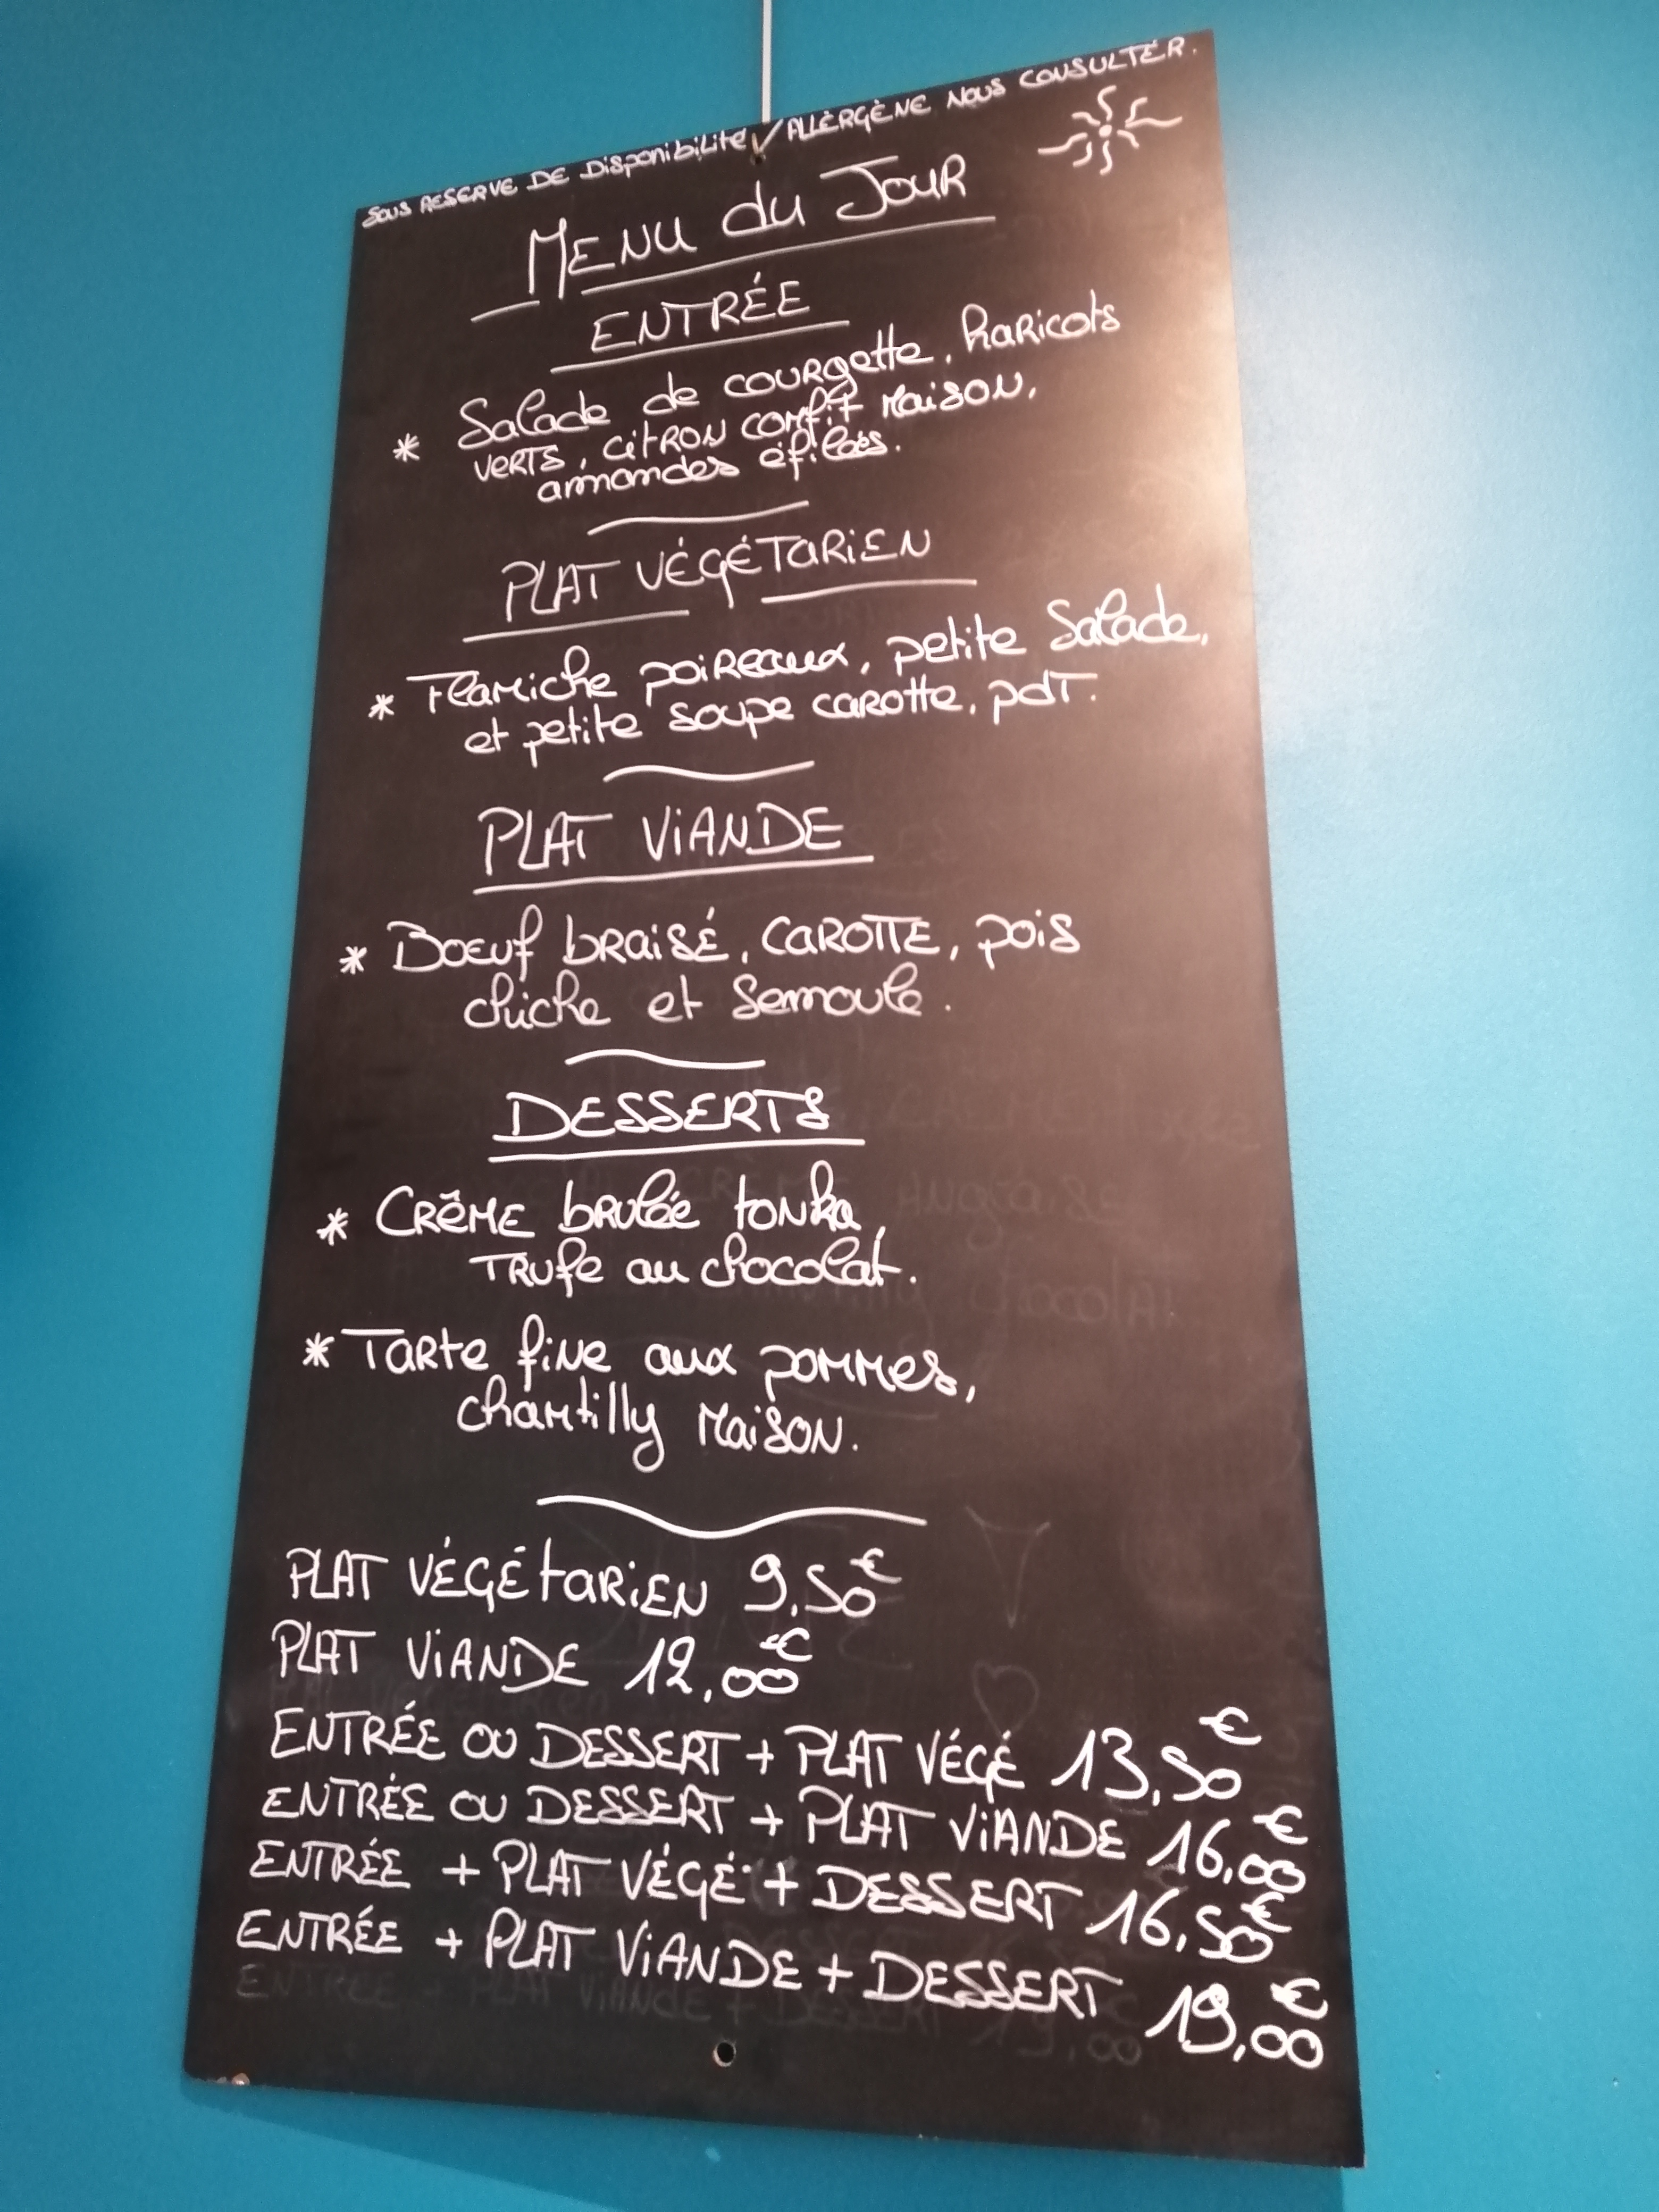 SOUS RESERVE DE DISPONIBILITÉ / ALLÈRGÈNE NOUS CONSULTER.
MENU du JOUR
ENTRÉE
* Salade de courgette, haricots
verts, citron confit maison,
amandes éfilées.
PLAT VÉGÉTARIEN
* Flamiche poireaux, petite salade,
et petite soupe carotte, pdt.
PLAT VIANDE
* Boeuf braisé, carotte, pois
chiche et semoule.
DESSERTS
* Crême brulée tonka,
trufe au chocolat.
* Tarte fine aux pommes,
chantilly maison.
PLAT VÉGÉTARIEN 9,50€
PLAT VIANDE 12,00€
ENTRÉE OU DESSERT + PLAT VÉGÉ 13,50€
ENTRÉE OU DESSERT + PLAT VIANDE 16,00€
ENTRÉE + PLAT VÉGÉ + DESSERT 16,50€
ENTRÉE + PLAT VIANDE + DESSERT 19,00€